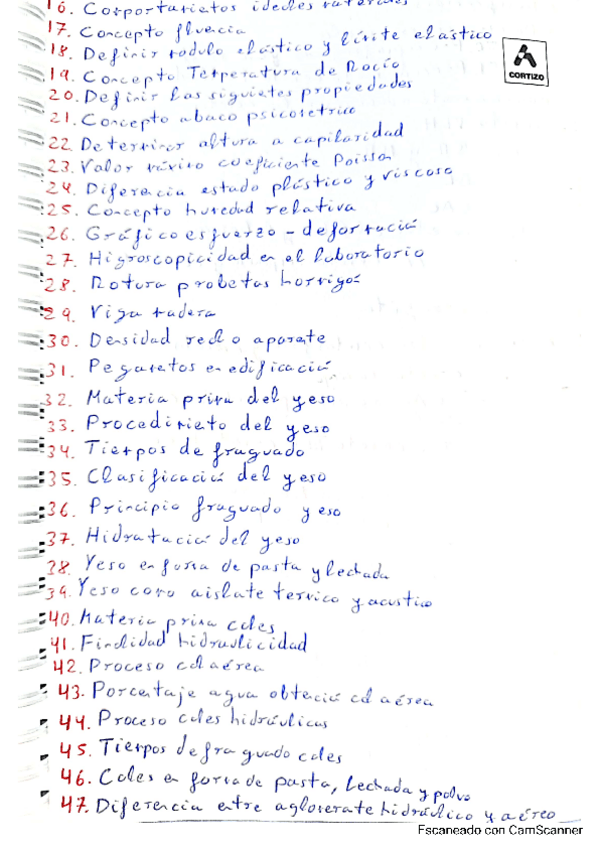 16. Comportamientos ideales materiales
17. Concepto fluencia
18. Definir módulo elástico y límite elástico
19. Concepto Temperatura de Rocío
CORTIZO
20. Definir las siguientes propiedades
21. Concepto abaco psicométrico
22. Determinar altura a capilaridad
23. Valor máximo coeficiente Poisson
24. Diferencia estado plástico y viscoso
25. Concepto humedad relativa
26. Gráfico esfuerzo - deformación
27. Higroscopicidad en el laboratorio
28. Rotura probetas hormigón
29. Viga madera
30. Densidad real o aparente
31. Pegamentos en edificación
32. Materia prima del yeso
33. Procedimiento del yeso
34. Tiempos de fraguado
35. Clasificación del yeso
36. Principio fraguado yeso
37. Hidratación del yeso
38. Yeso en forma de pasta y lechada
39. Yeso como aislante térmico y acustico
40. Materia prima cales
41. Finalidad hidraulicidad
42. Proceso cal aérea
43. Porcentaje agua obtención cal aérea
44. Proceso cales hidráulicas
45. Tiempos de fraguado cales
46. Cales en forma de pasta, lechada y polvo
47. Diferencia entre aglomerante hidráulico y aéreo
Escaneado con CamScanner